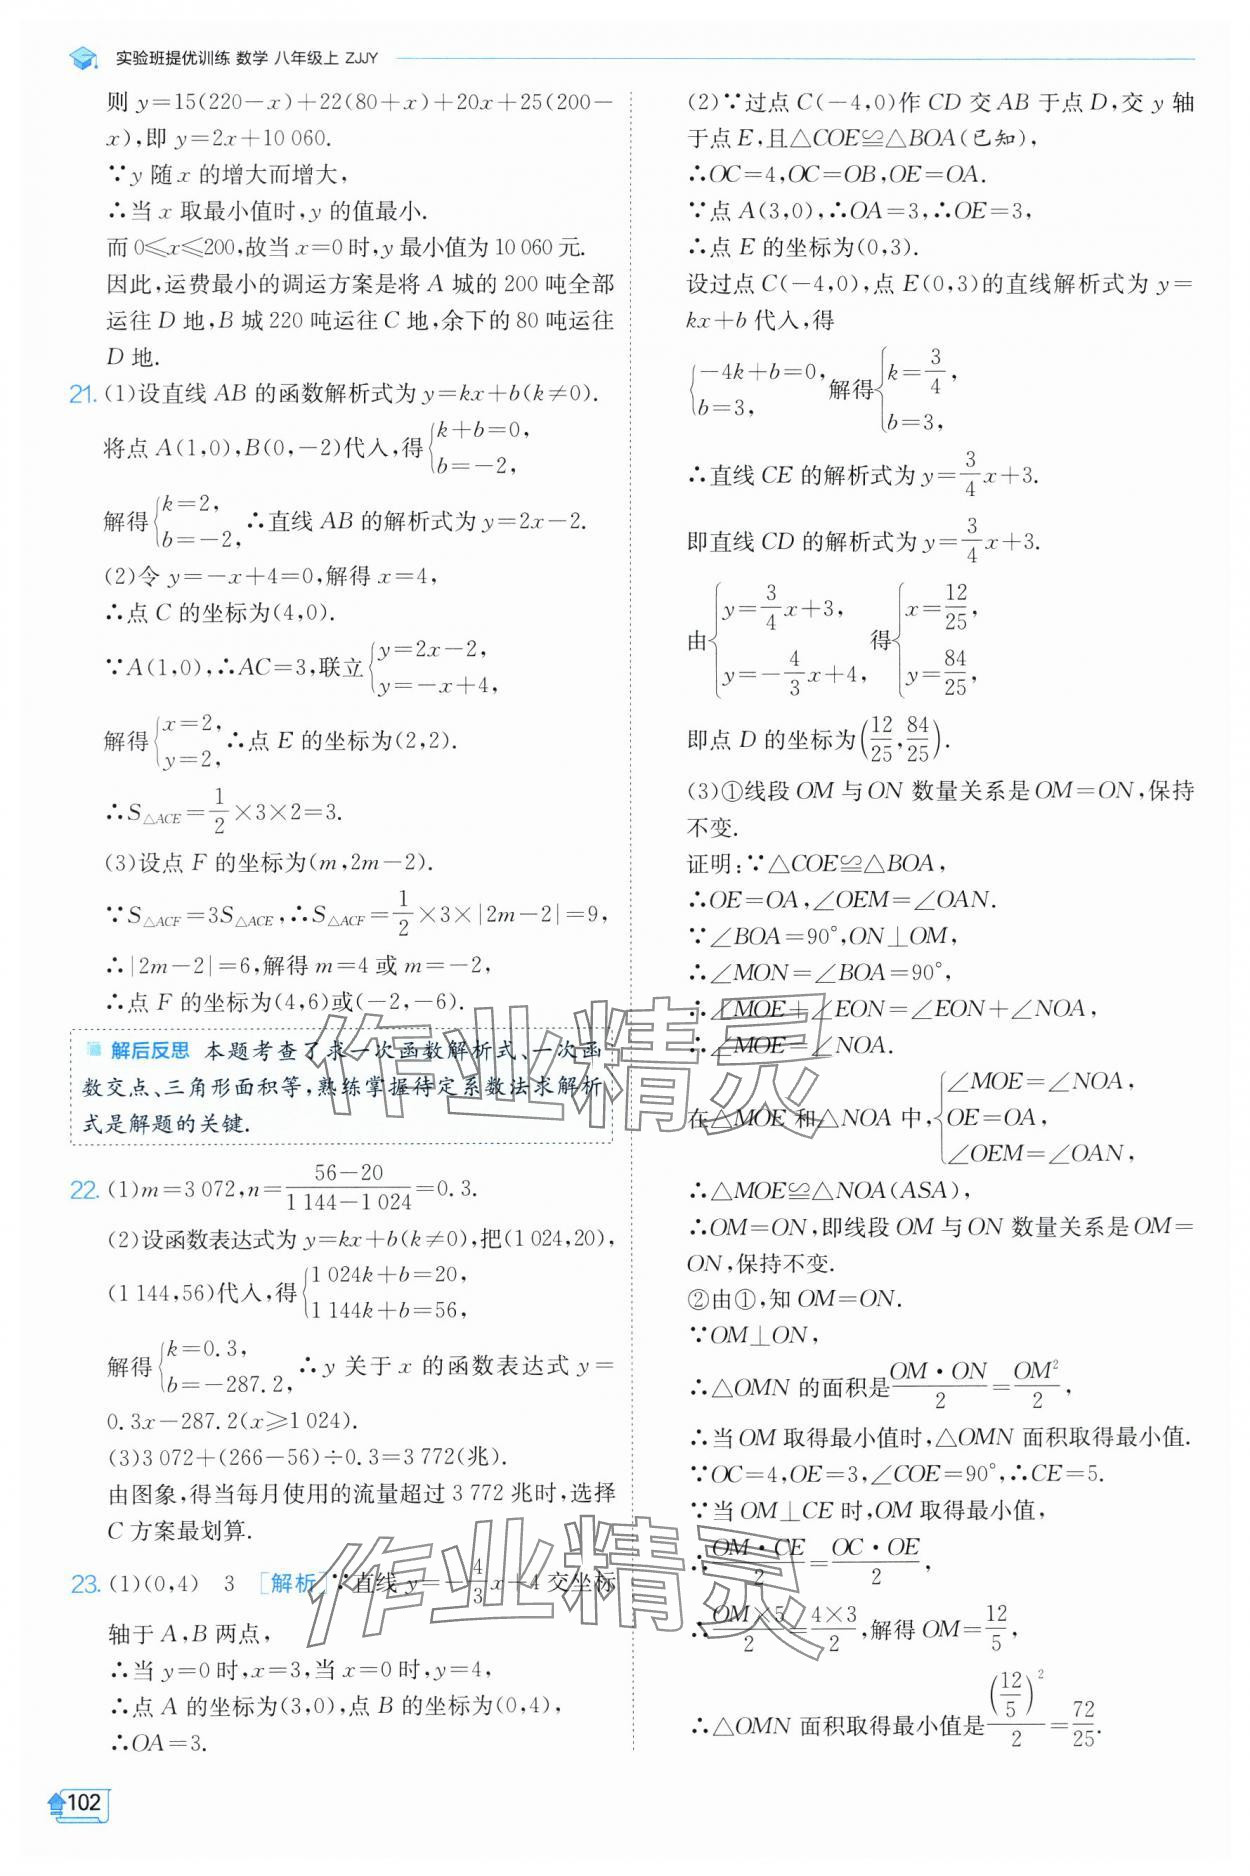 实验班提优训练 数学 八年级上 ZJJY
则 y=15(220-x)+22(80+x)+20x+25(200-
x),即 y=2x+10 060.
∵y 随 x 的增大而增大,
∴当 x 取最小值时,y 的值最小.
而 0≤x≤200,故当 x=0 时,y 最小值为 10 060 元.
因此,运费最小的调运方案是将 A 城的 200 吨全部
运往 D 地,B 城 220 吨运往 C 地,余下的 80 吨运往
D 地.
21. (1)设直线 AB 的函数解析式为 y=kx+b(k≠0).
将点 A(1,0),B(0,-2)代入,得{k+b=0, b=-2,
解得{k=2, b=-2, ∴直线 AB 的解析式为 y=2x-2.
(2)令 y=-x+4=0,解得 x=4,
∴点 C 的坐标为(4,0).
∵A(1,0),∴AC=3,联立{y=2x-2, y=-x+4,
解得{x=2, y=2, ∴点 E 的坐标为(2,2).
∴S△ACE=1/2×3×2=3.
(3)设点 F 的坐标为(m,2m-2).
∵S△ACF=3S△ACE,∴S△ACF=1/2×3×|2m-2|=9,
∴|2m-2|=6,解得 m=4 或 m=-2,
∴点 F 的坐标为(4,6)或(-2,-6).
解后反思 本题考查了求一次函数解析式、一次函
数交点、三角形面积等,熟练掌握待定系数法求解析
式是解题的关键.
22. (1)m=3 072,n=(56-20)/(1 144-1 024)=0.3.
(2)设函数表达式为 y=kx+b(k≠0),把(1 024,20),
(1 144,56)代入,得{1 024k+b=20, 1 144k+b=56,
解得{k=0.3, b=-287.2, ∴y 关于 x 的函数表达式 y=
0.3x-287.2(x≥1 024).
(3)3 072+(266-56)÷0.3=3 772(兆).
由图象,得当每月使用的流量超过 3 772 兆时,选择
C 方案最划算.
23. (1)(0,4) 3 [解析]∵直线 y=-4/3x+4 交坐标
轴于 A,B 两点,
∴当 y=0 时,x=3,当 x=0 时,y=4,
∴点 A 的坐标为(3,0),点 B 的坐标为(0,4),
∴OA=3.
(2)∵过点 C(-4,0)作 CD 交 AB 于点 D,交 y 轴
于点 E,且△COE≌△BOA(已知),
∴OC=4,OC=OB,OE=OA.
∵点 A(3,0),∴OA=3,∴OE=3,
∴点 E 的坐标为(0,3).
设过点 C(-4,0),点 E(0,3)的直线解析式为 y=
kx+b 代入,得
{-4k+b=0, b=3, 解得{k=3/4, b=3,
∴直线 CE 的解析式为 y=3/4x+3.
即直线 CD 的解析式为 y=3/4x+3.
由{y=3/4x+3, y=-4/3x+4, 得{x=12/25, y=84/25,
即点 D 的坐标为(12/25,84/25).
(3)①线段 OM 与 ON 数量关系是 OM=ON,保持
不变.
证明:∵△COE≌△BOA,
∴OE=OA,∠OEM=∠OAN.
∵∠BOA=90°,ON⊥OM,
∴∠MON=∠BOA=90°,
∴∠MOE+∠EON=∠EON+∠NOA,
∴∠MOE=∠NOA.
在△MOE 和△NOA 中,{∠MOE=∠NOA, OE=OA, ∠OEM=∠OAN,
∴△MOE≌△NOA(ASA),
∴OM=ON,即线段 OM 与 ON 数量关系是 OM=
ON,保持不变.
②由①,知 OM=ON.
∵OM⊥ON,
∴△OMN 的面积是 OM·ON/2=OM²/2,
∴当 OM 取得最小值时,△OMN 面积取得最小值.
∵OC=4,OE=3,∠COE=90°,∴CE=5.
∵当 OM⊥CE 时,OM 取得最小值,
∴OM·CE/2=OC·OE/2,
∴OM×5/2=4×3/2,解得 OM=12/5,
∴△OMN 面积取得最小值是(12/5)²/2=72/25.
102
作业精灵
作业精灵